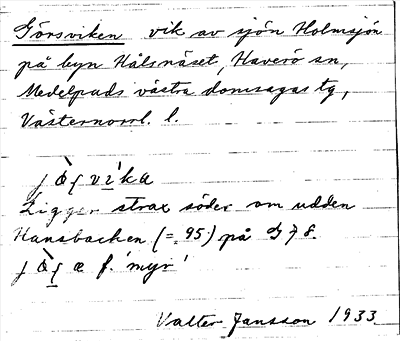 Görsviken vik av sjön Holmsjön
på byn Hålsnäset, Haverö sn,
Medelpads västra domsagas tg,
Västernorrl. l.
vi`ka
Ligger strax söder om udden
Hansbacken (= 95) på G 78.
f. 'myr'
Valter Jansson 1933